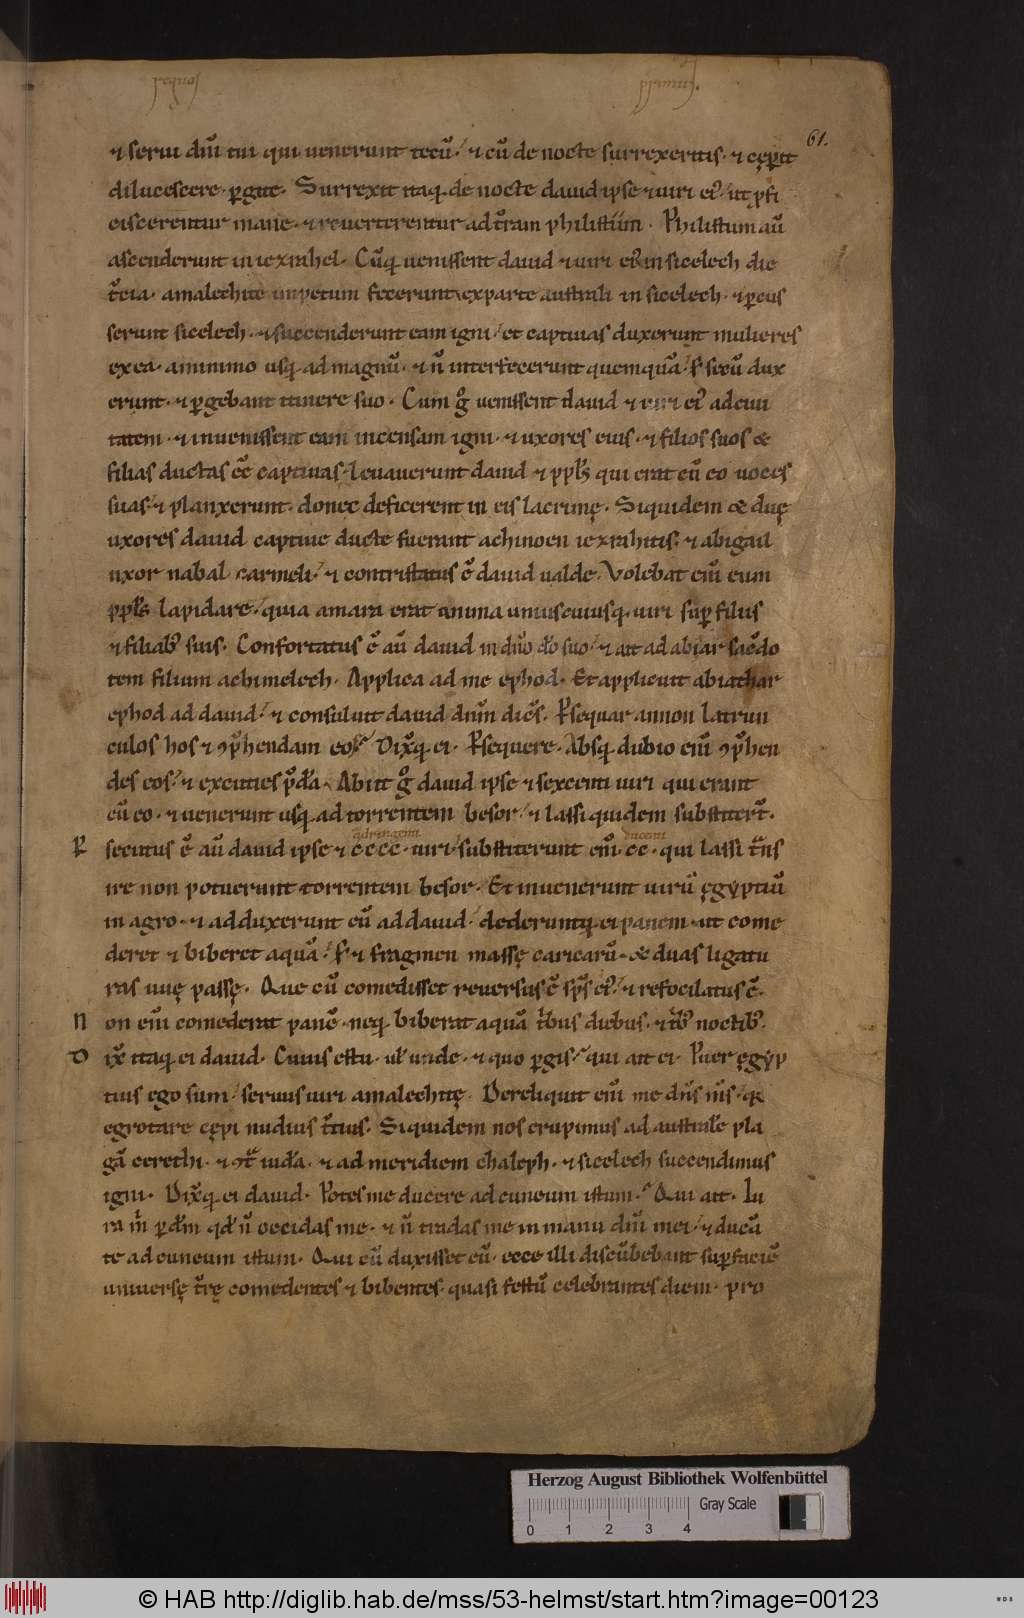 61.
⁊ serui dñi tui qui uenerunt tecũ. ⁊ cũ de nocte surrexeritis. ⁊ cęperit
dilucescere. ꝑgite. Surrexit itaq; de nocte dauid ipse ⁊ uiri ei'. ut ꝓfi
ciscerentur mane. ⁊ reuerterentur ad t̃ram philistiim. Philistiim aũ
ascenderunt in iezrahel. Cũq; uenissent dauid ⁊ uiri ei' in sicelech die
t̃cia. amalechite impetum fecerunt ex parte australi in sicelech. ⁊ ꝑcus
serunt sicelech. ⁊ succenderunt eam igni. et captiuas duxerunt mulieres
ex ea. a minimo usq; ad magnũ. ⁊ ñ interfecerunt quemquã. s; secũ dux
erunt. ⁊ ꝑgebant itinere suo. Cum g̊ uenissent dauid ⁊ uiri ei' ad ciui
tatem. ⁊ inuenissent eam incensam igni. ⁊ uxores eius. ⁊ filios suos &
filias ductas eẽ captiuas. leuauerunt dauid ⁊ ppl's qui erat cũ eo uoces
suas. ⁊ planxerunt. donec deficerent in eis lacrimę. Siquidem & duę
uxores dauid captiue ducte fuerant achinoen iezrahitis. ⁊ abigail
uxor nabal carmeli. ⁊ contristatus ẽ dauid ualde. Volebat eñi eum
ppl's lapidare. quia amara erat anima uniuscuiusq; uiri suꝑ filiis
⁊ filiab' suis. Confortatus ẽ aũ dauid in dño do suo. ⁊ ait ad abiar sacẽdo
tem filium achimelech. Applica ad me ephod. Et applicuit abiathar
ephod ad dauid. ⁊ consuluit dauid dñm dicẽs. Ꝑsequar an non latrun
culos hos ⁊ ꝯp̃hendam eos. Dixq; ei. Ꝑsequere. Absq; dubio eñi ꝯp̃hen
des eos. ⁊ excuties p̃da. Abiit g̊ dauid ipse ⁊ sexcenti uiri qui erant
cũ eo. ⁊ uenerunt usq; ad torrentem besor. ⁊ lassi quidem substiter̃t.
Ꝑ secutus ẽ aũ dauid ipse ⁊ cccc. uiri. substiterunt eñi. cc. qui lassi t̃ns
ire non potuerunt torrentem besor. Et inuenerunt uirũ ęgyptiũ
in agro. ⁊ adduxerunt eũ ad dauid. dederuntq; ei panem. ut come
deret ⁊ biberet aquã. s; ⁊ fragmen massę caricarũ. & duas ligatu
ras uuę passę. Que cũ comedisset reuersus ẽ sp̃s ei'. ⁊ refocilatus ẽ.
N on eñi comederat panẽ. neq; biberat aquã t̃bus diebus. ⁊ t̃b' noctib'.
D ix̃ itaq; ei dauid. Cuius es tu. ul' unde. ⁊ quo ꝑgis. qui ait ei. Puer ęgyp
tius ego sum. seruus uiri amalechitę. Dereliquit eñi me dñs m̃s. q;
egrotare cępi nudius t̃tius. Siquidem nos erupimus ad australe pla
gã cerethi. ⁊ ꝯt̃ iuda. ⁊ ad meridiem chaleph. ⁊ sicelech succendimus
igni. Dixq; ei dauid. Potes me ducere ad cuneum istum. Qui ait. Iu
ra m̃ ꝑ dm̃ qd' ñ occidas me. ⁊ ñ tradas me in manu dñi mei. ⁊ ducã
te ad cuneum istum. Qui cũ duxisset eũ. ecce illi discũbebant suꝑ faciẽ
uniuersę t̃rę comedentes ⁊ bibentes. quasi festũ celebrantes diem. pro
Herzog August Bibliothek Wolfenbüttel
Gray Scale
0 1 2 3 4
© HAB http://diglib.hab.de/mss/53-helmst/start.htm?image=00123